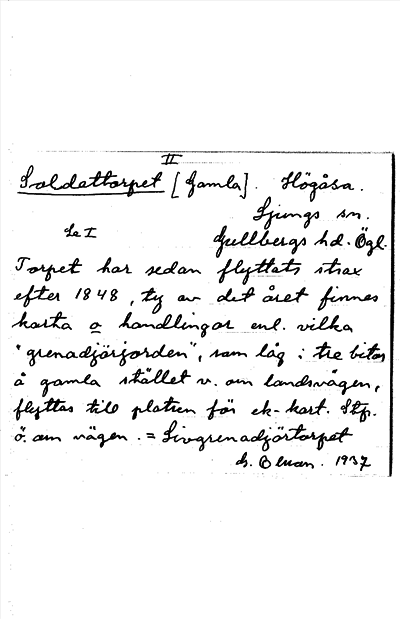 II
Soldattorpet [Gamla]. Högåsa.
Ljungs sn.
Se I Gullbergs hd. Ögl.
Torpet har sedan flyttats strax
efter 1848, ty av det året finnes
karta o handlingar enl. vilka
"grenadjärjorden", som låg i tre bitar
å gamla stället v. om landsvägen,
flyttas till platsen för ek-kart. Stp.
ö. om vägen. = Livgrenadjörtorpet
1937